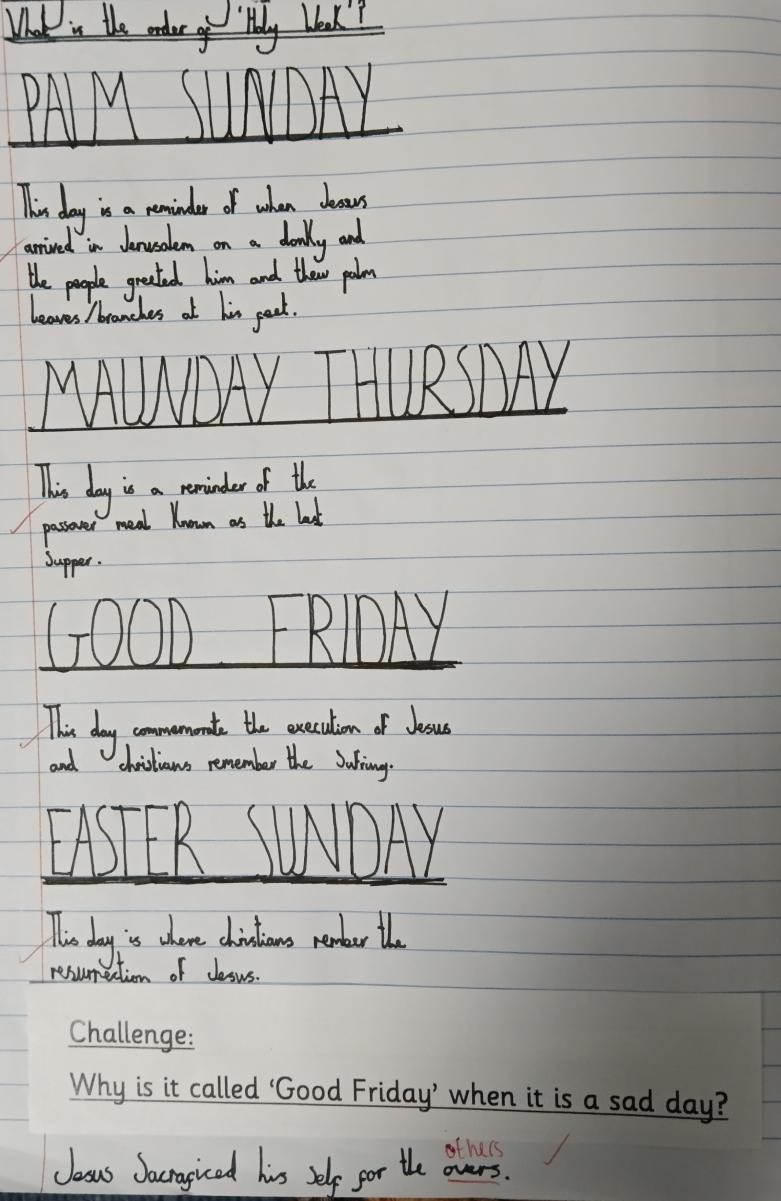 What is the order of 'Holy Week'?
PALM SUNDAY
This day is a reminder of when Jesus
arrived in Jerusalem on a donky and
the people greeted him and thew palm
leaves/branches at his feet.
MAUNDAY THURSDAY
This day is a reminder of the
passover meal Known as the last
Supper.
GOOD FRIDAY
This day commemorate the execution of Jesus
and christians remember the Sufring.
EASTER SUNDAY
This day is where christians rember the
resurrection of Jesus.
Challenge:
Why is it called 'Good Friday' when it is a sad day?
others
Jesus Sacragiced his self for the overs.